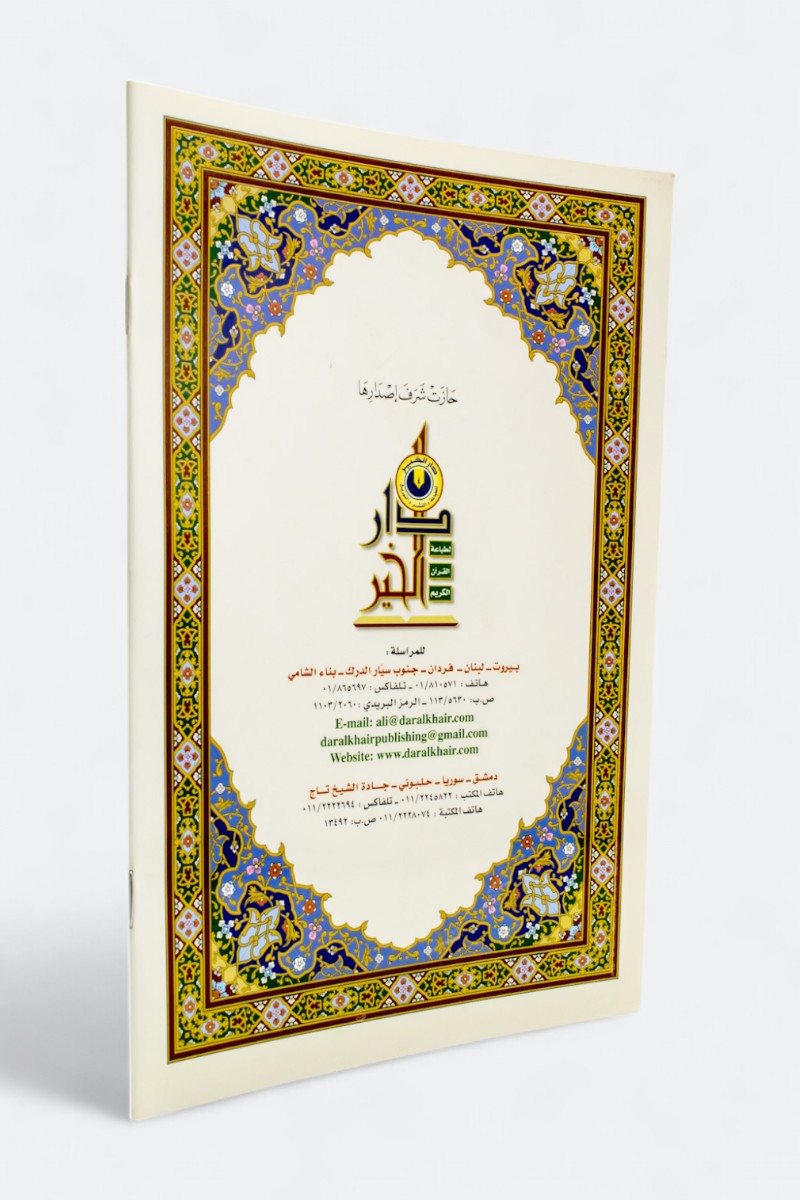 حَازَتْ شَرَفَ إِصْدَارِهَا
دار الخير
دار
الخير
لطباعة
القرآن
الكريم
للمراسلة :
بيروت - لبنان - فردان - جنوب سيّار الدرك - بناء الشامي
هاتف : ٠١/٨١٠٥٧١ - تلفاكس : ٠١/٨٦٥٦٩٧
ص.ب: ١١٣/٥٦٣٠ - الرمز البريدي : ١١٠٣/٢٠٦٠
E-mail: ali@daralkhair.com
daralkhairpublishing@gmail.com
Website: www.daralkhair.com
دمشق - سوريا - حلبوني - جادة الشيخ تاج
هاتف المكتب : ٠١١/٢٢٤٥٨٢٢ - تلفاكس : ٠١١/٢٢٢٢٦٩٤
هاتف المكتبة : ٠١١/٢٢٢٨٠٧٤ ص.ب: ١٣٤٩٢